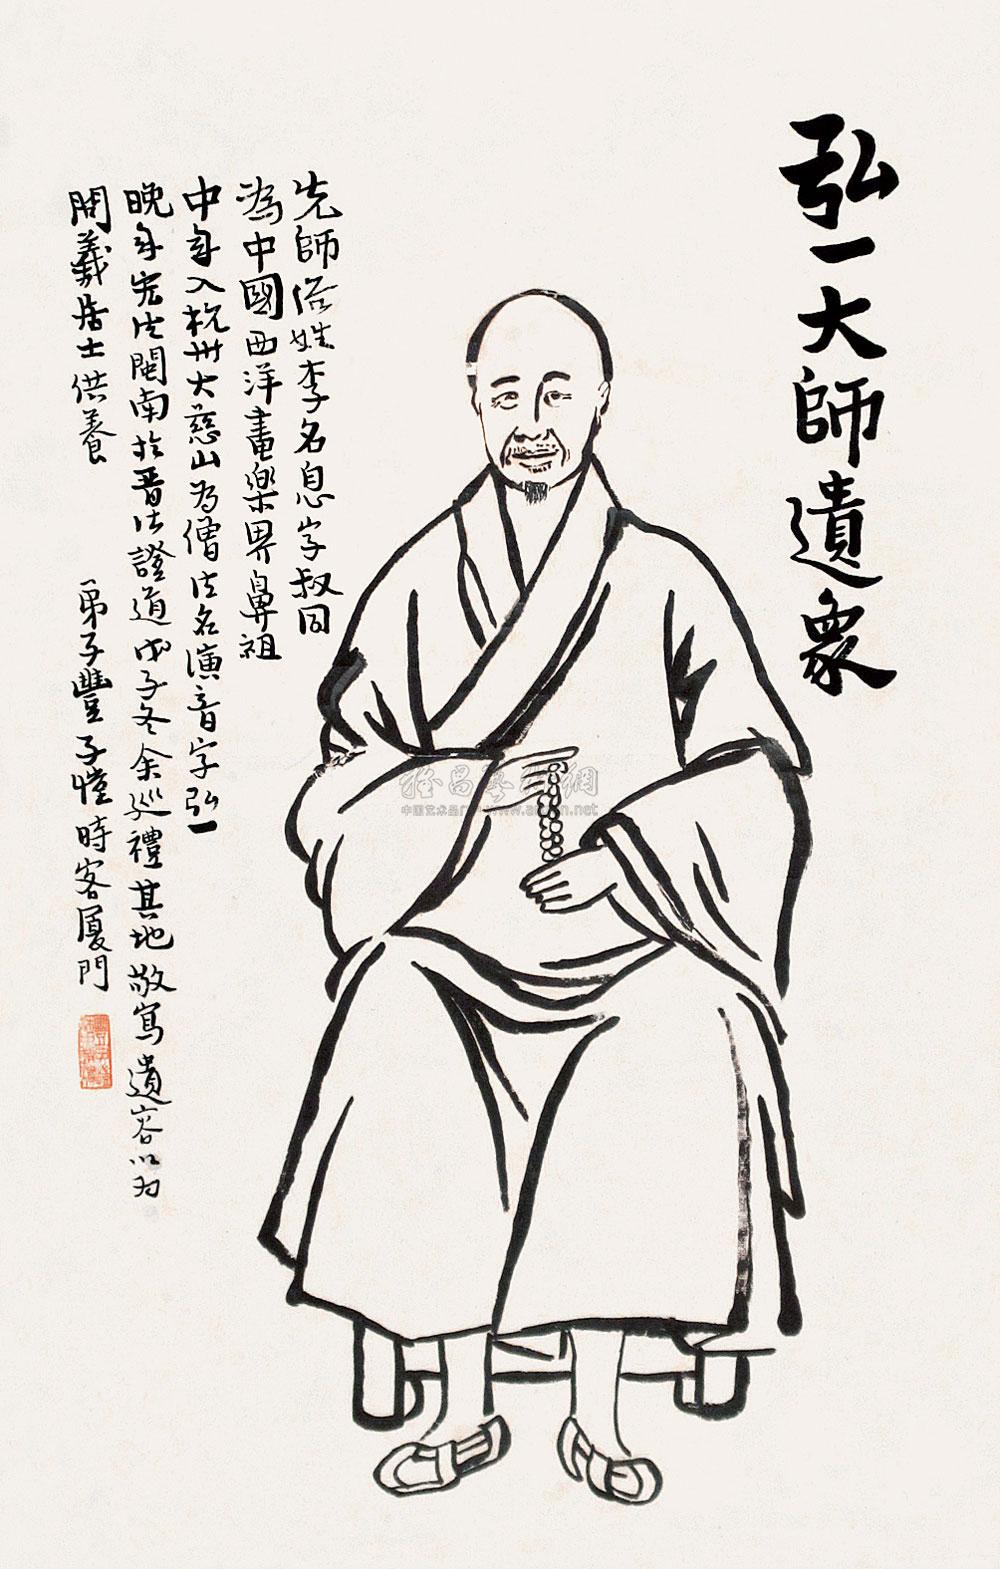 弘一大師遺象
先師俗姓李名息字叔同
為中國西洋畫樂界鼻祖
中年入杭州大慈山为僧法名演音字弘一
晚年宏法閩南於晋江證道戊子冬余巡禮其地敬寫遺容以为
開義居士供養
弟子豐子愷時客厦門
中国艺术品门户网 www.artron.net